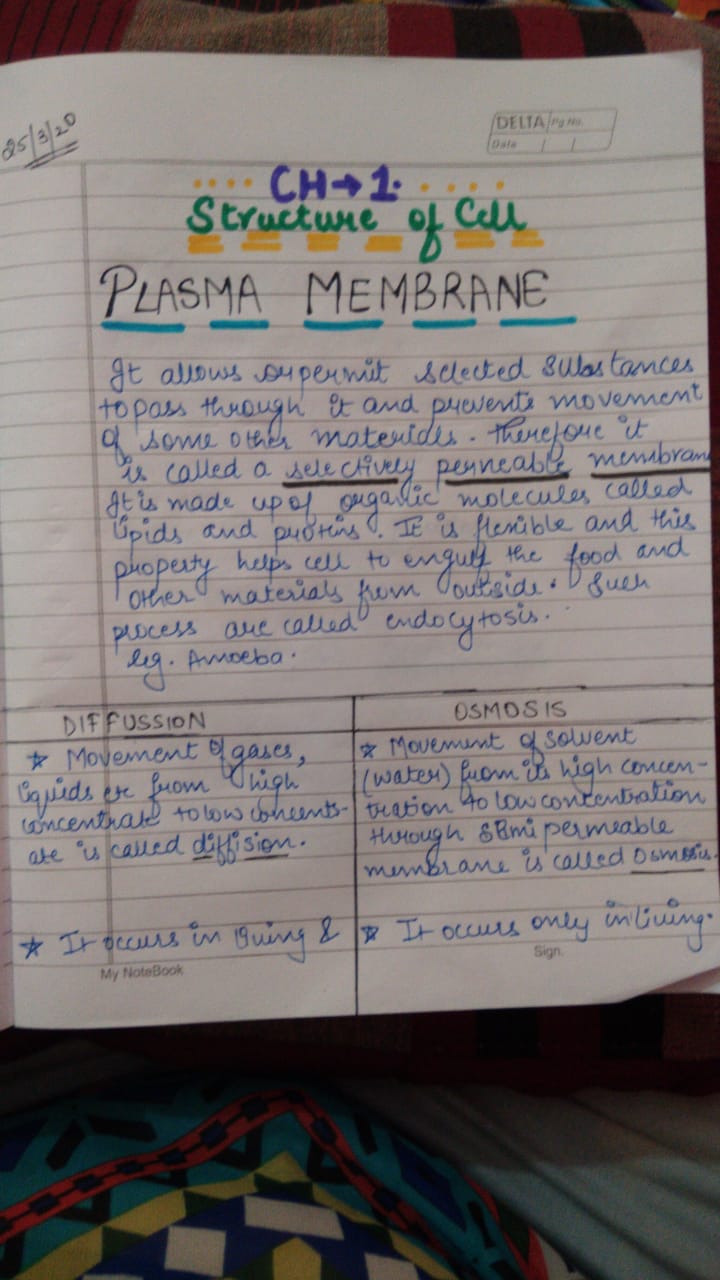 25/3/20
DELTA Pg.No.
Date
CH→1.
Structure of Cell
PLASMA MEMBRANE
It allows or permit selected substances
to pass through it and prevents movement
of some other materials. Therefore it
is called a selectively permeable membran
It is made up of organic molecules called
lipids and protins. It is flexible and this
property helps cell to engulf the food and
other materials from outside. Such
process are called endocytosis.
eg. Amoeba.
DIFFUSSION
★ Movement of gases,
liquids etc from high
concentrate to low concentr-
ate is called diffision.
★ It occurs in living &
OSMOSIS
★ Movement of solvent
(water) from its high concen-
tration to low concentration
through semi permeable
membrane is called Osmosis.
★ It occurs only in living.
My NoteBook
Sign.